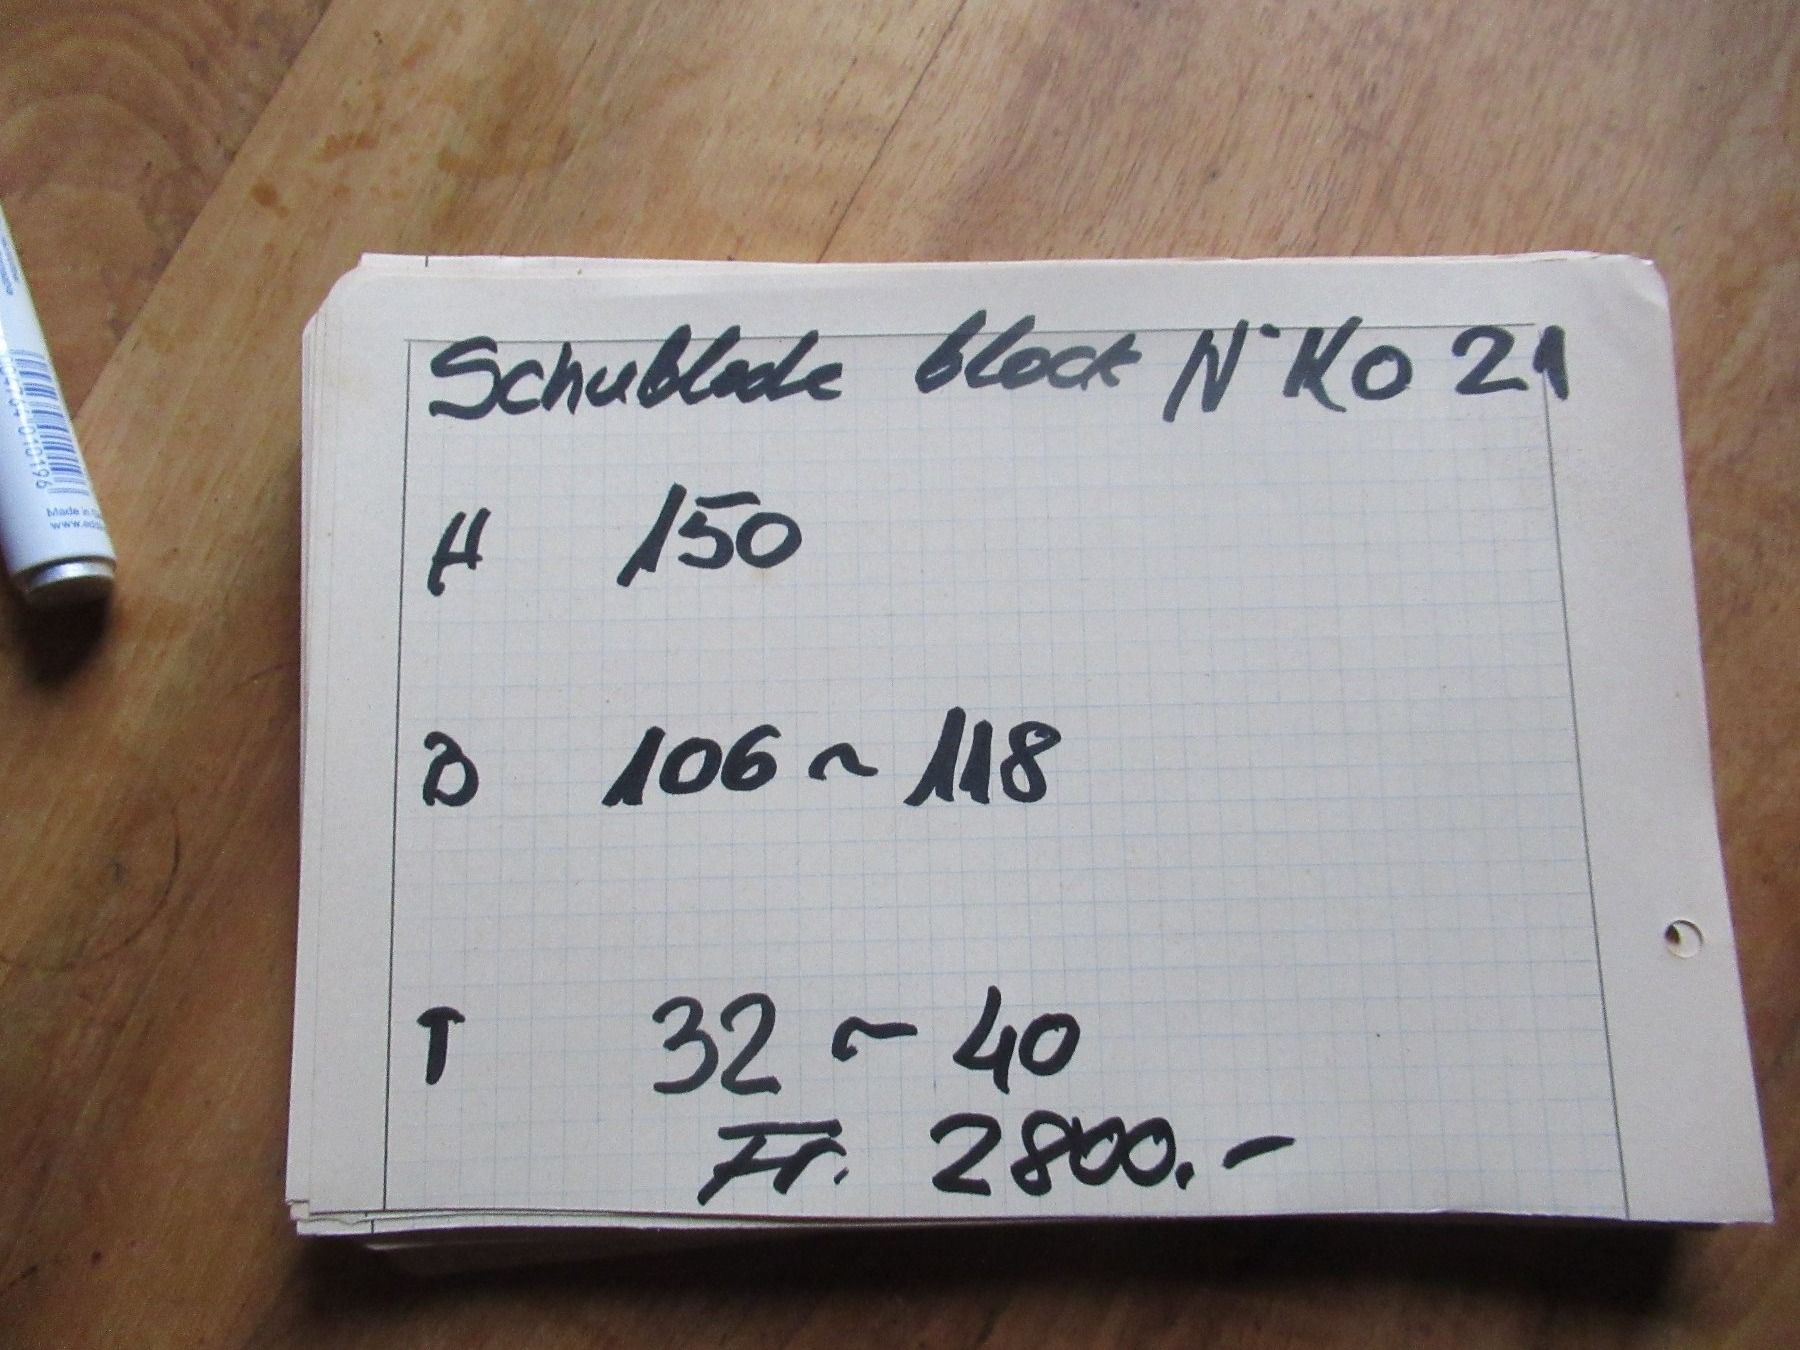 Schublade block N° KO 21
H 150
B 106 ~ 118
T 32 ~ 40
Fr. 2800.-
Made in
www.edd